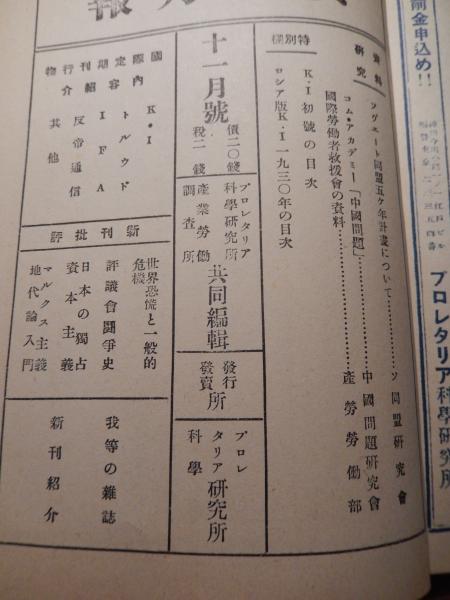 報
資料
研究
ソヴエート同盟五ケ年計畫について………ソ同盟研究會
コム・アカデミー「中國問題」………中國問題研究會
國際勞働者救援會の資料………產勞勞働部
特別欄
K・I初號の目次
ロシア版K・I一九三〇年の目次
十一月號
價二〇錢
稅二錢
プロレタリア
科學研究所
產業勞働
調査所
共同編輯
發行
發賣
所
プロレ
タリア
科學
研究所
國際
內
定期刊行物
容紹介
K・I
トルウド
I F A
反帝通信
其他
新刊批評
世界恐慌と一般的
危機
評議會鬪爭史
日本の獨占
資本主義
マルクス主義
地代論入門
我等の雜誌
新刊紹介
前金申込め!!
プロレタリア科學研究所